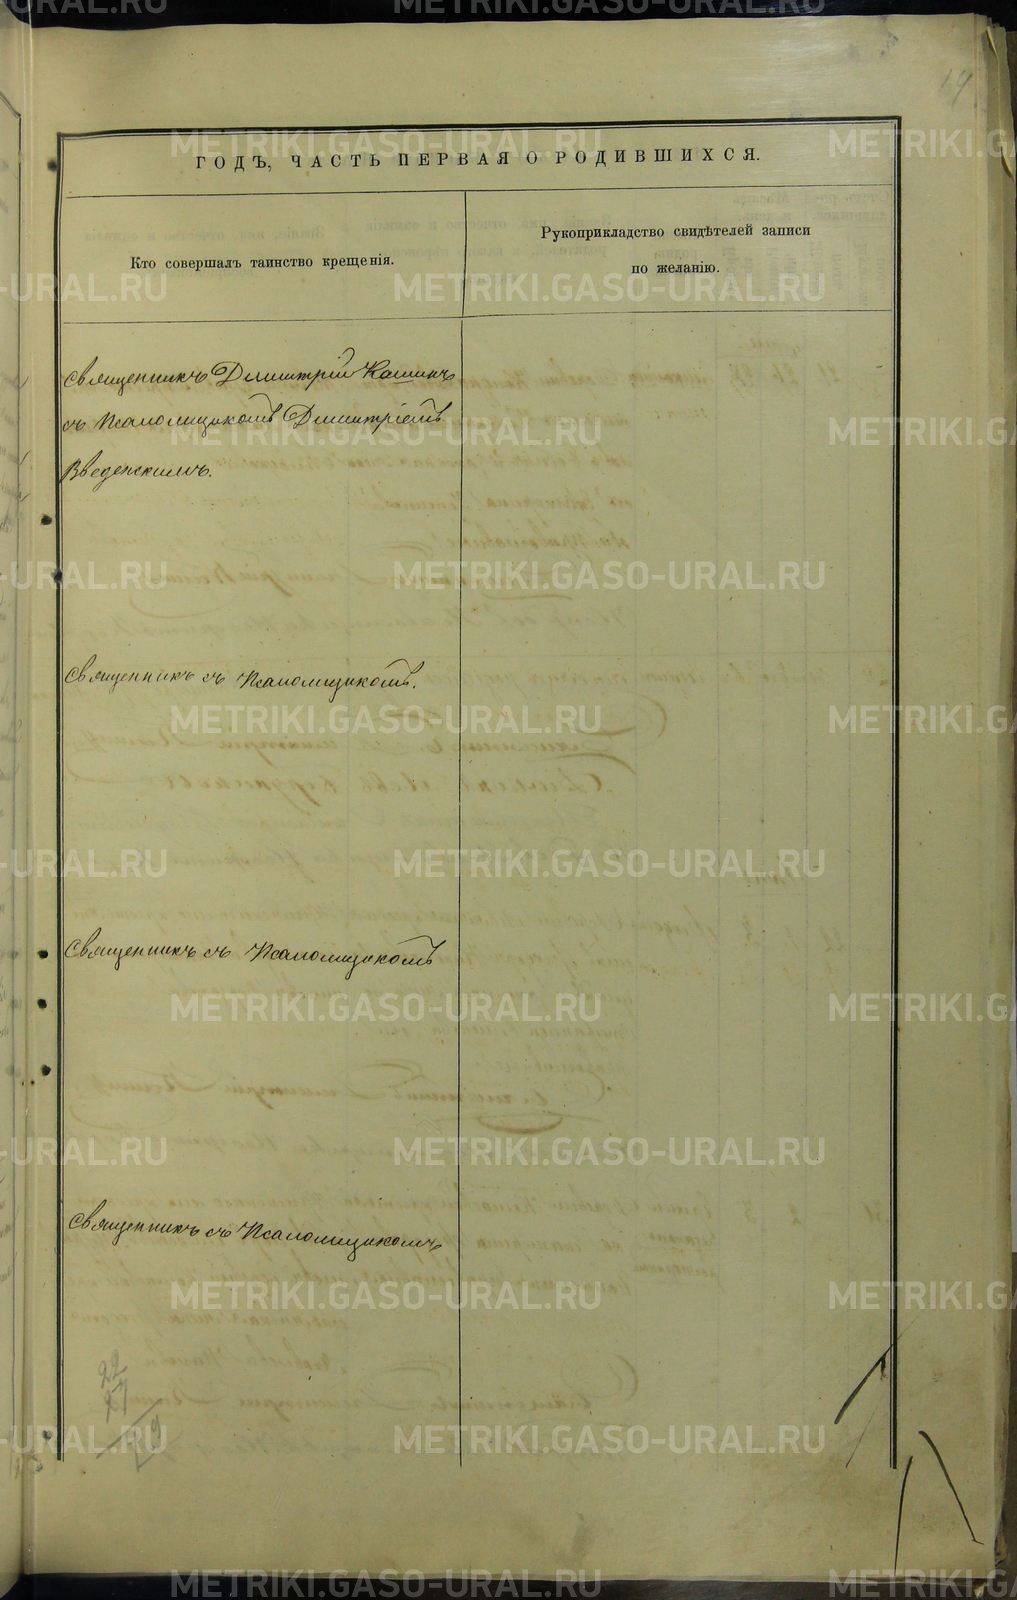 19
ГОДЪ, ЧАСТЬ ПЕРВАЯ О РОДИВШИХСЯ.
Кто совершалъ таинство крещенія.
Рукоприкладство свидѣтелей записи
по желанію.
Священникъ Димитрій Кашинъ
съ Псаломщикомъ Димитріемъ
Введенскимъ.
Священникъ съ Псаломщикомъ.
Священникъ съ Псаломщикомъ
Священникъ съ Псаломщикомъ
22
27
METRIKI.GASO-URAL.RU